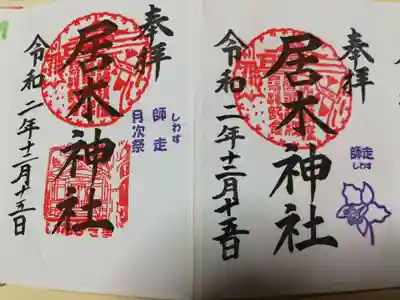 奉拝
居木神社
しわす
師走
月次祭
令和二年十二月十五日
奉拝
居木神社
師走
しわす
令和二年十二月十五日